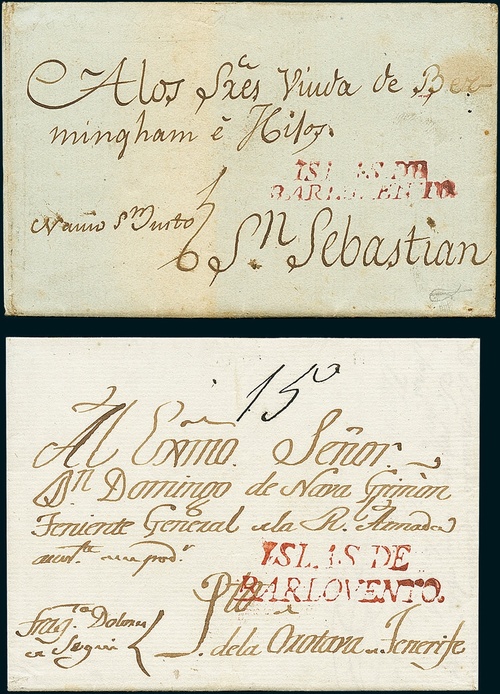 A los Sres Viuda de Ber-
mingham é Hijos.
ISLAS DE
BARLOVENTO.
Navío Sn Justo
Sn Sebastian
15
Al Exmo. Señor.
Dn Domingo de Nava Grimon
Teniente General de la Rl. Armada
ISLAS DE
BARLOVENTO.
Pto
Fragta Dolores
de la Orotava en Tenerife